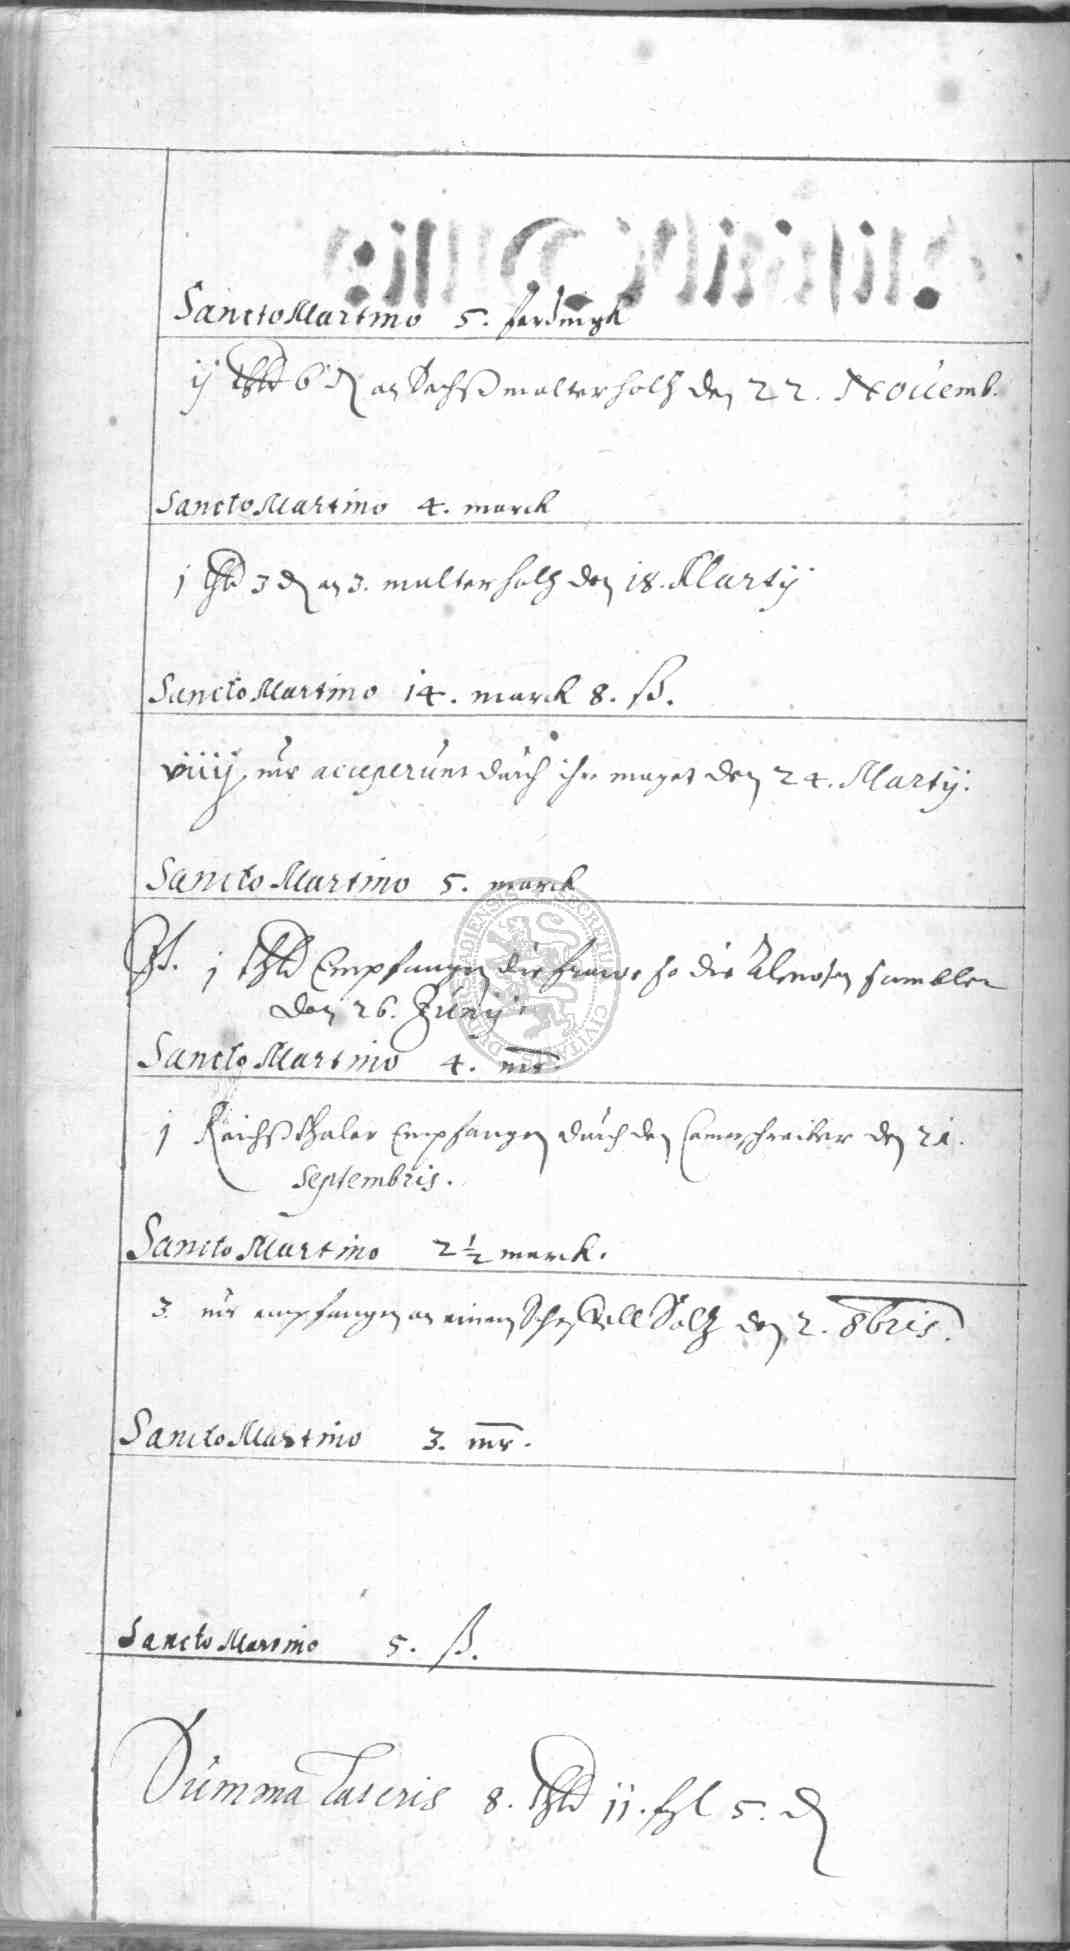 Sancto Martino 5. ferdingk
ij thld 6 ₰ an Sechß malter holtz den 22. Nouemb.
Sancto Martino 4. marck
j thld 3 ₰ an 3. malter holtz den 18. Martij
Sancto Martino 14. marck 8. ß.
viiij mr acceperunt durch ihr maget den 24. Martij.
Sancto Martino 5. marck
It. j thld Empfangen die frawe so die Almosen samblen
den 26. Junij
Sancto Martino 4. mr.
j Reichßthaler Empfangen durch den Camerschreiber den 21.
Septembris.
Sancto Martino 2 1/2 marck.
3. mr empfangen an einem Scheffell Saltz den 2. 8bris.
Sancto Martino 3. mr.
Sancto Martino 5. ß.
Summa Lateris 8. thld ij. ßl 5. ₰